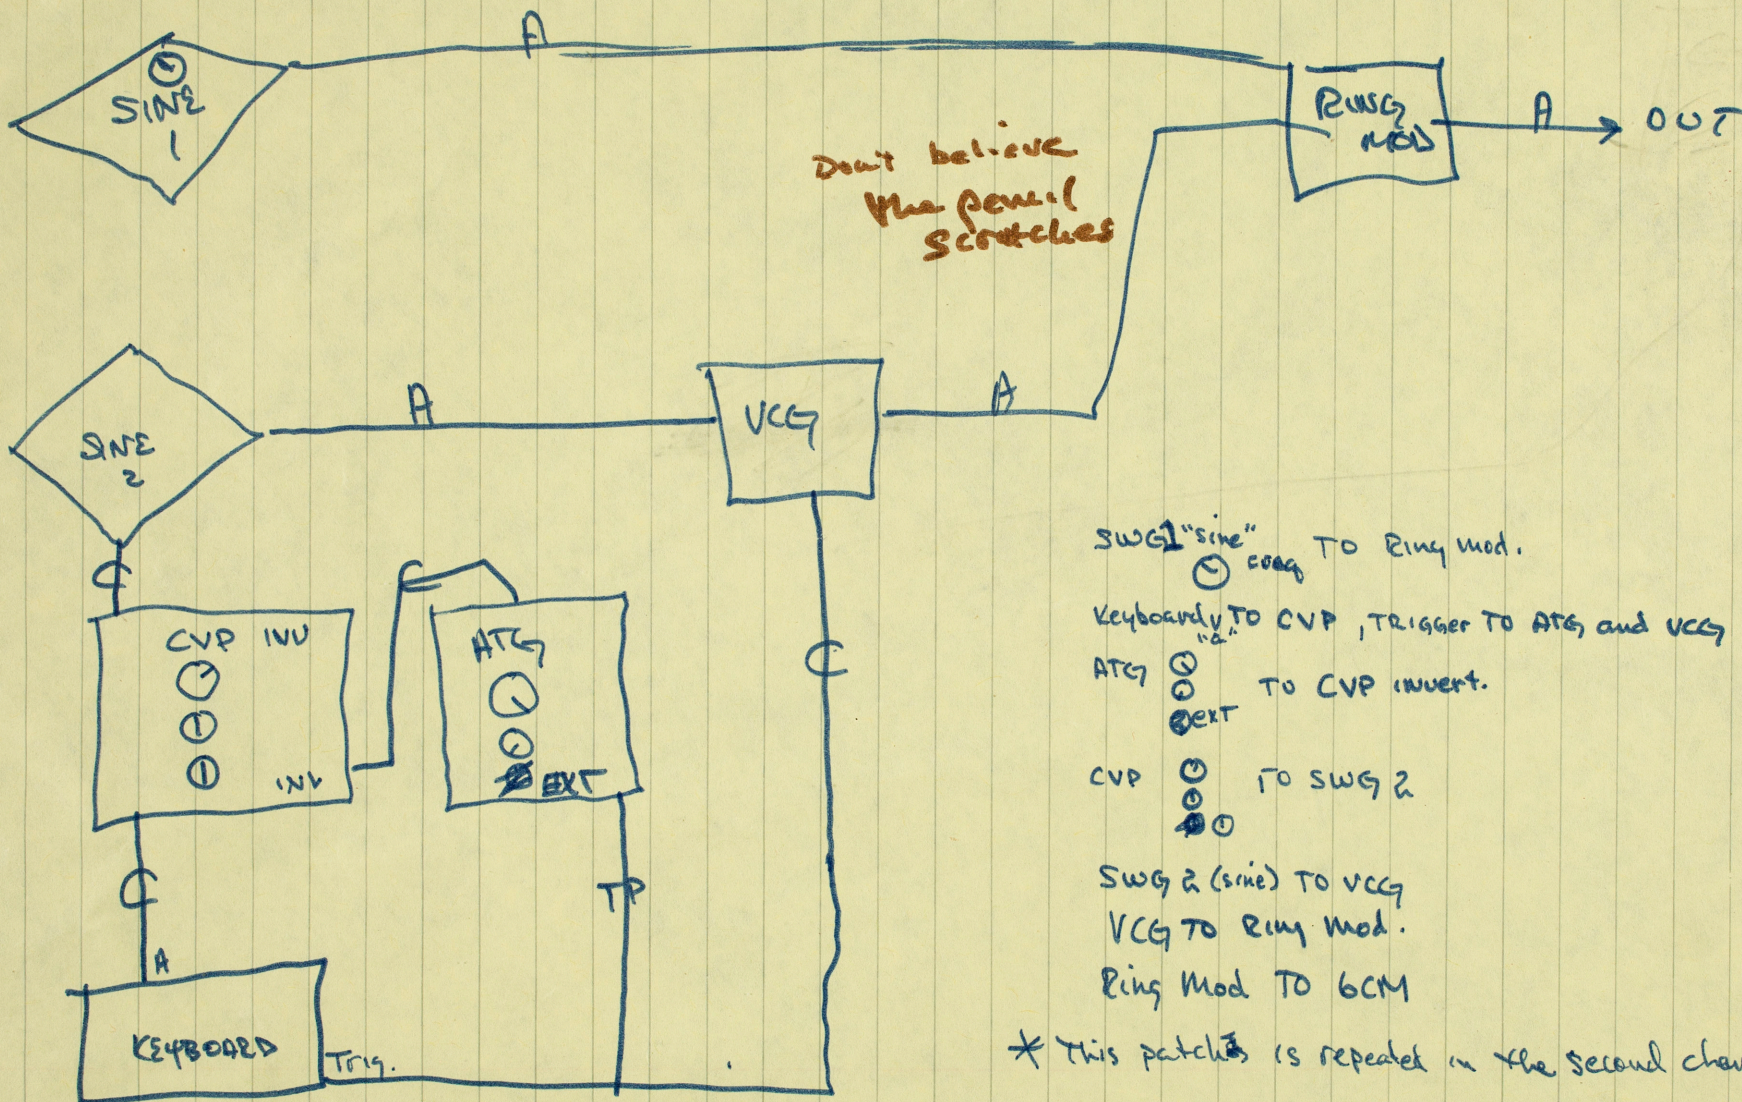 A
SINE
1
RING
MOD
A
OUT
Don't believe
the pencil
scratches
SINE
2
A
VCG
A
C
CVP INV
INV
C
ATG
EXT
C
C
A
TP
KEYBOARD
Trig.
SWG1 "sine"
TO Ring Mod.
Keyboard TO CVP, TRIGGER TO ATG and VCG
"a"
ATG
TO CVP invert.
EXT
CVP TO SWG 2
SWG 2 (sine) TO VCG
VCG TO Ring Mod.
Ring Mod TO 6CM
* This patch is repeated in the second